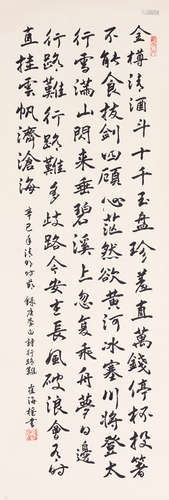 金樽清酒斗十千玉盤珍羞直萬錢停杯投箸
不能食拔劍四顧心茫然欲黃河冰塞川將登太
行雪滿山閑來垂碧溪上忽復乘舟夢日邊
行路難行路難多歧路今安在長風破浪會有時
直挂雲帆濟滄海
辛巳年清明時節 錄唐李白詩行路難 崔海書